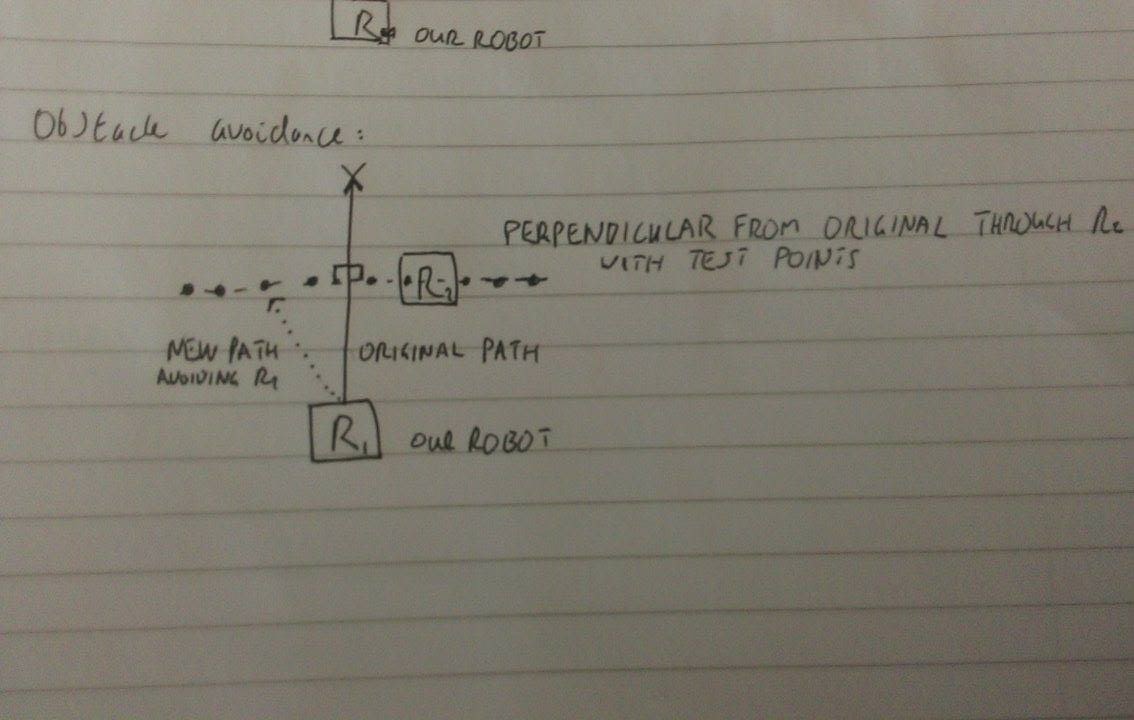 R OUR ROBOT
Obstacle avoidance:
X
PERPENDICULAR FROM ORIGINAL THROUGH R2
WITH TEST POINTS
R2
NEW PATH
AVOIDING R1
ORIGINAL PATH
R1 OUR ROBOT